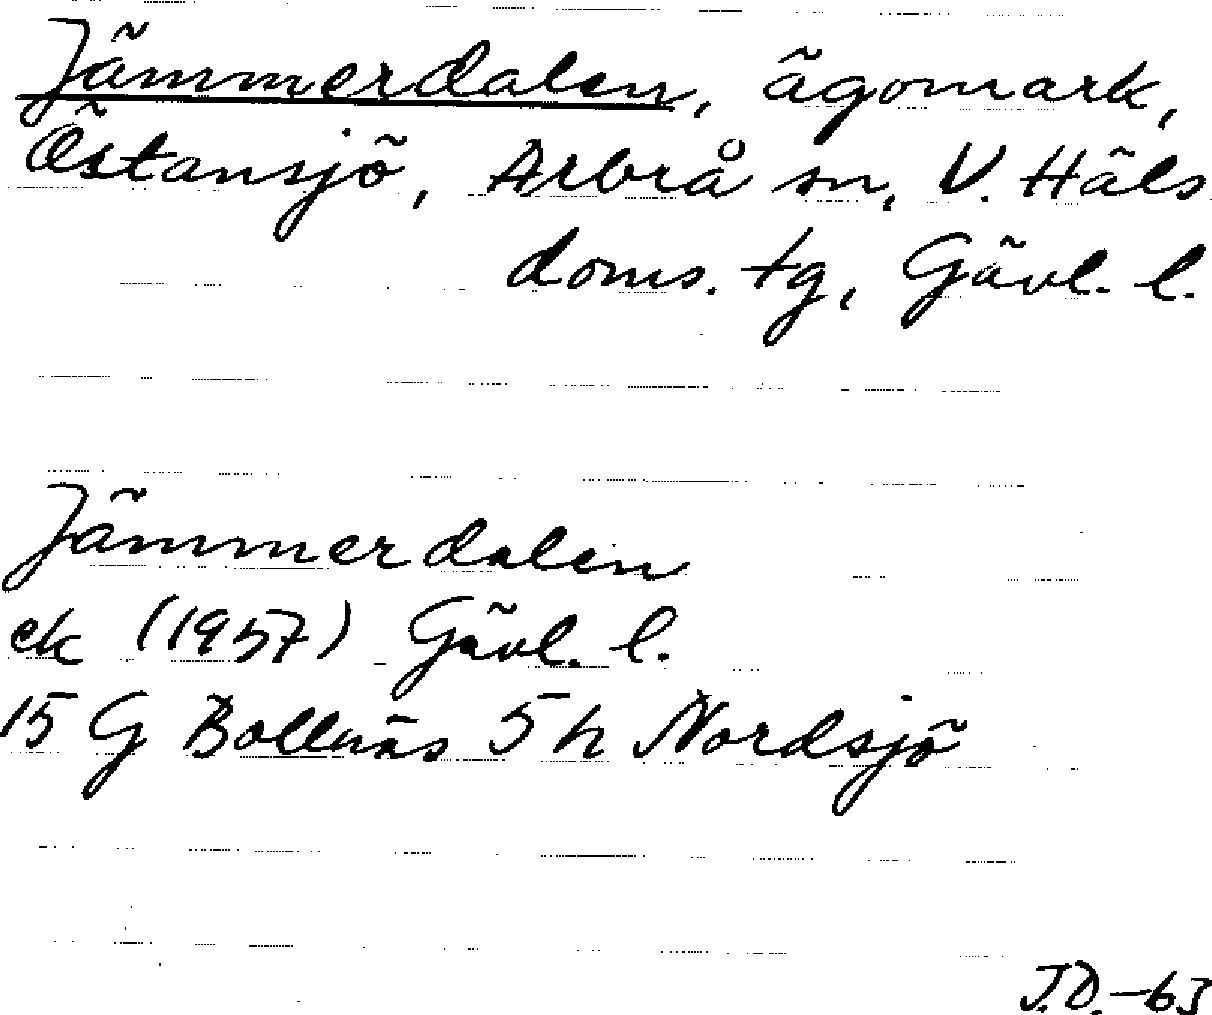 Jämmerdalen, ägomark,
Östansjö, Arbrå sn, V. Häls
doms. tg, Gävl. l.
Jämmerdalen
ek (1957) Gävl. l.
15 G Bollnäs 5 h Nordsjö
J.D.-63